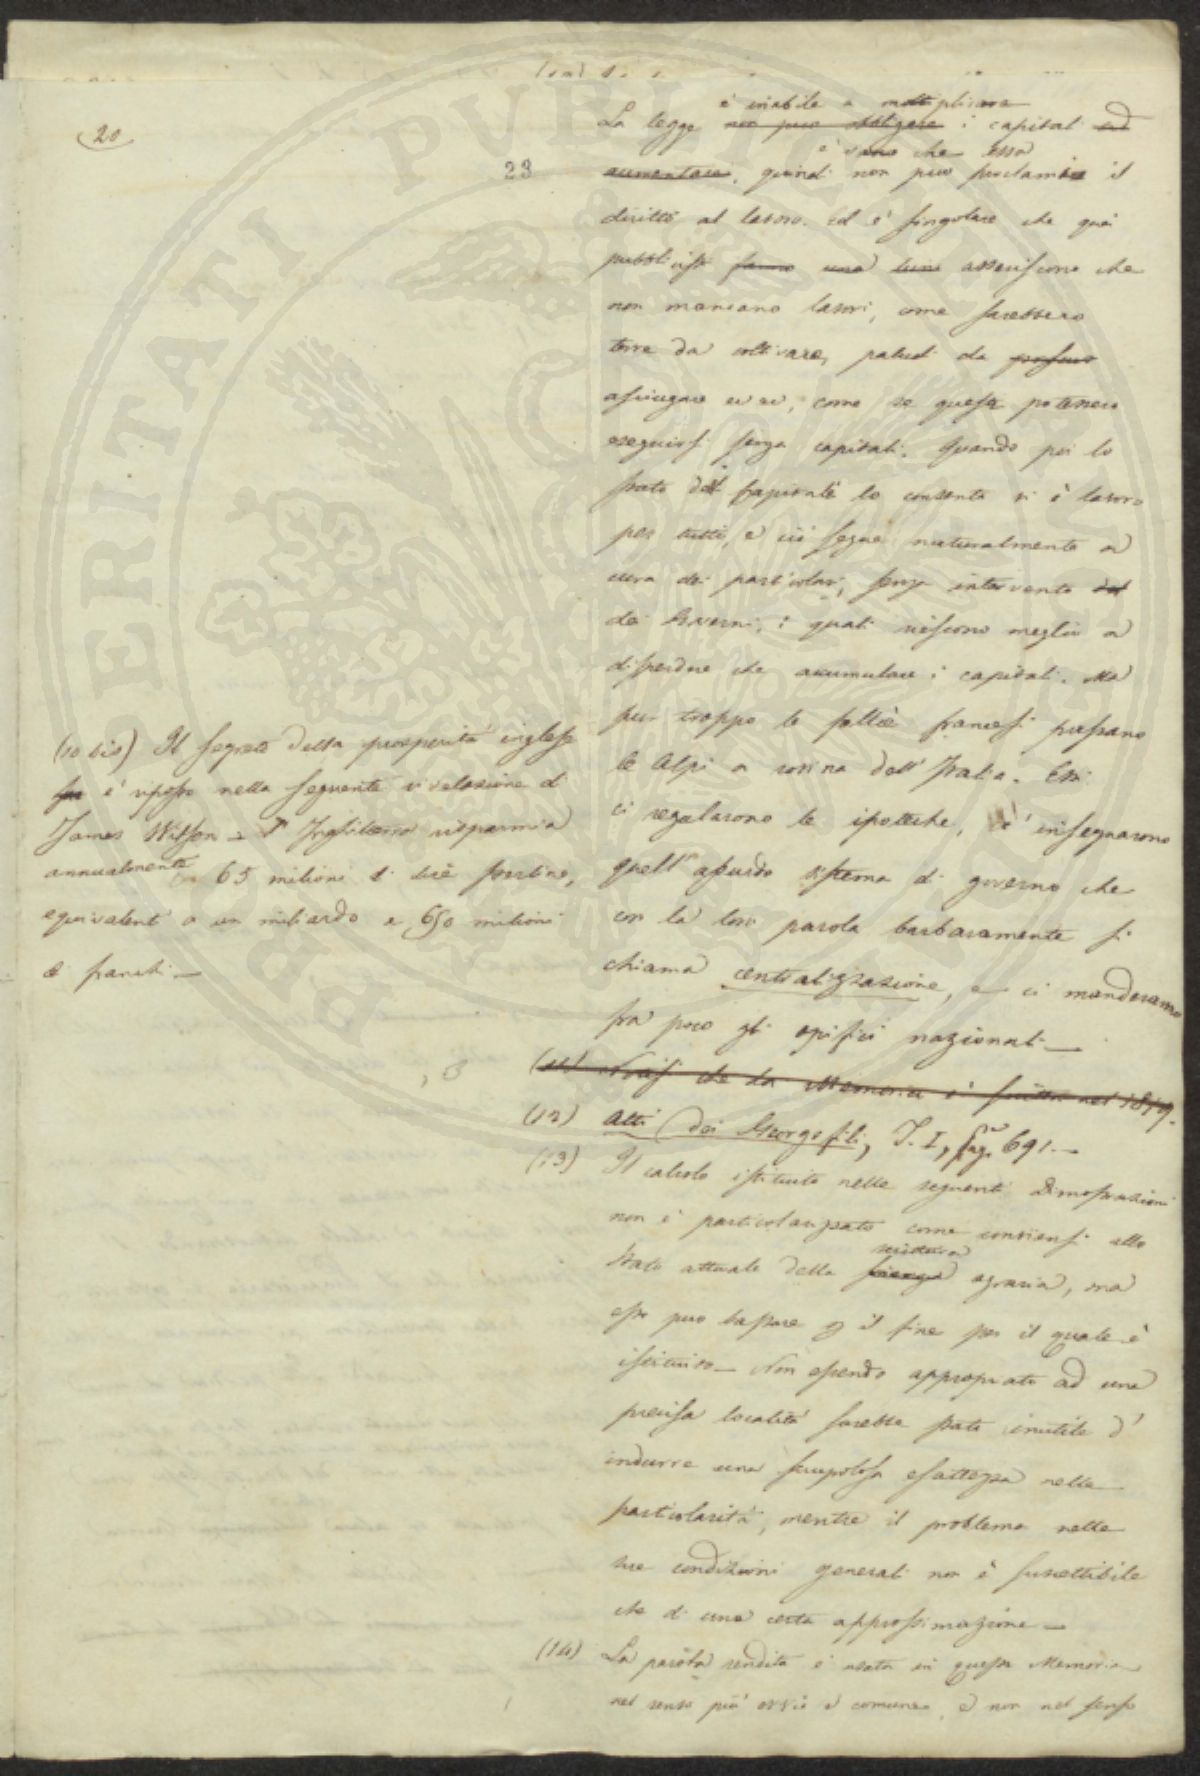 20
23
è inabile a moltiplicare
La legge non può obbligare i capitali ad
è vano che essa
aumentarsi, quindi non può proclamare il
diritto al lavoro. Ed è singolare che quei
pubblicisti fanno una asseriscono che
non mancano lavori, come sarebbero
terre da coltivare, paludi da
asciugare ec ec, come se questi potessero
eseguirsi senza capitali. Quando poi lo
stato del capitale lo consente vi è lavoro
per tutti, e ciò segue naturalmente a
cura dei particolari, senza intervento del
dei Governi, i quali riescono meglio a
disperdere che accumulare i capitali. Ma
pur troppo le follie francesi passano
le Alpi a rovina dell'Italia. Essi
ci regalarono le ipoteche, c'insegnarono
quell'assurdo sistema di governo che
con la loro parola barbaramente si
chiama centralizzazione, e ci manderanno
fra poco gli opifici nazionali —
(10 bis) Il segreto della prosperità inglese
è riposto nella seguente rivelazione di
James Wilson — L'Inghilterra risparmia
annualmente 65 milioni di lire sterline,
equivalenti a un miliardo e 650 milioni
di franchi —
(11) che la Memoria è scritta nel 1849.
(12) Atti dei Georgofili, T. I, pag. 691. —
(13) Il calcolo istituito nelle seguenti dimostrazioni
non è particolarizzato come conviensi allo
stato attuale della scienza agraria, ma
esso può bastare per il fine per il quale è
istituito — Non essendo appropriato ad una
precisa località sarebbe stato inutile d'
indurre una scrupolosa esattezza nelle
particolarità, mentre il problema nelle
sue condizioni generali non è suscettibile
che di una certa approssimazione —
(14) La parola rendita è usata in questa Memoria
nel senso più ovvio e comune, e non nel senso